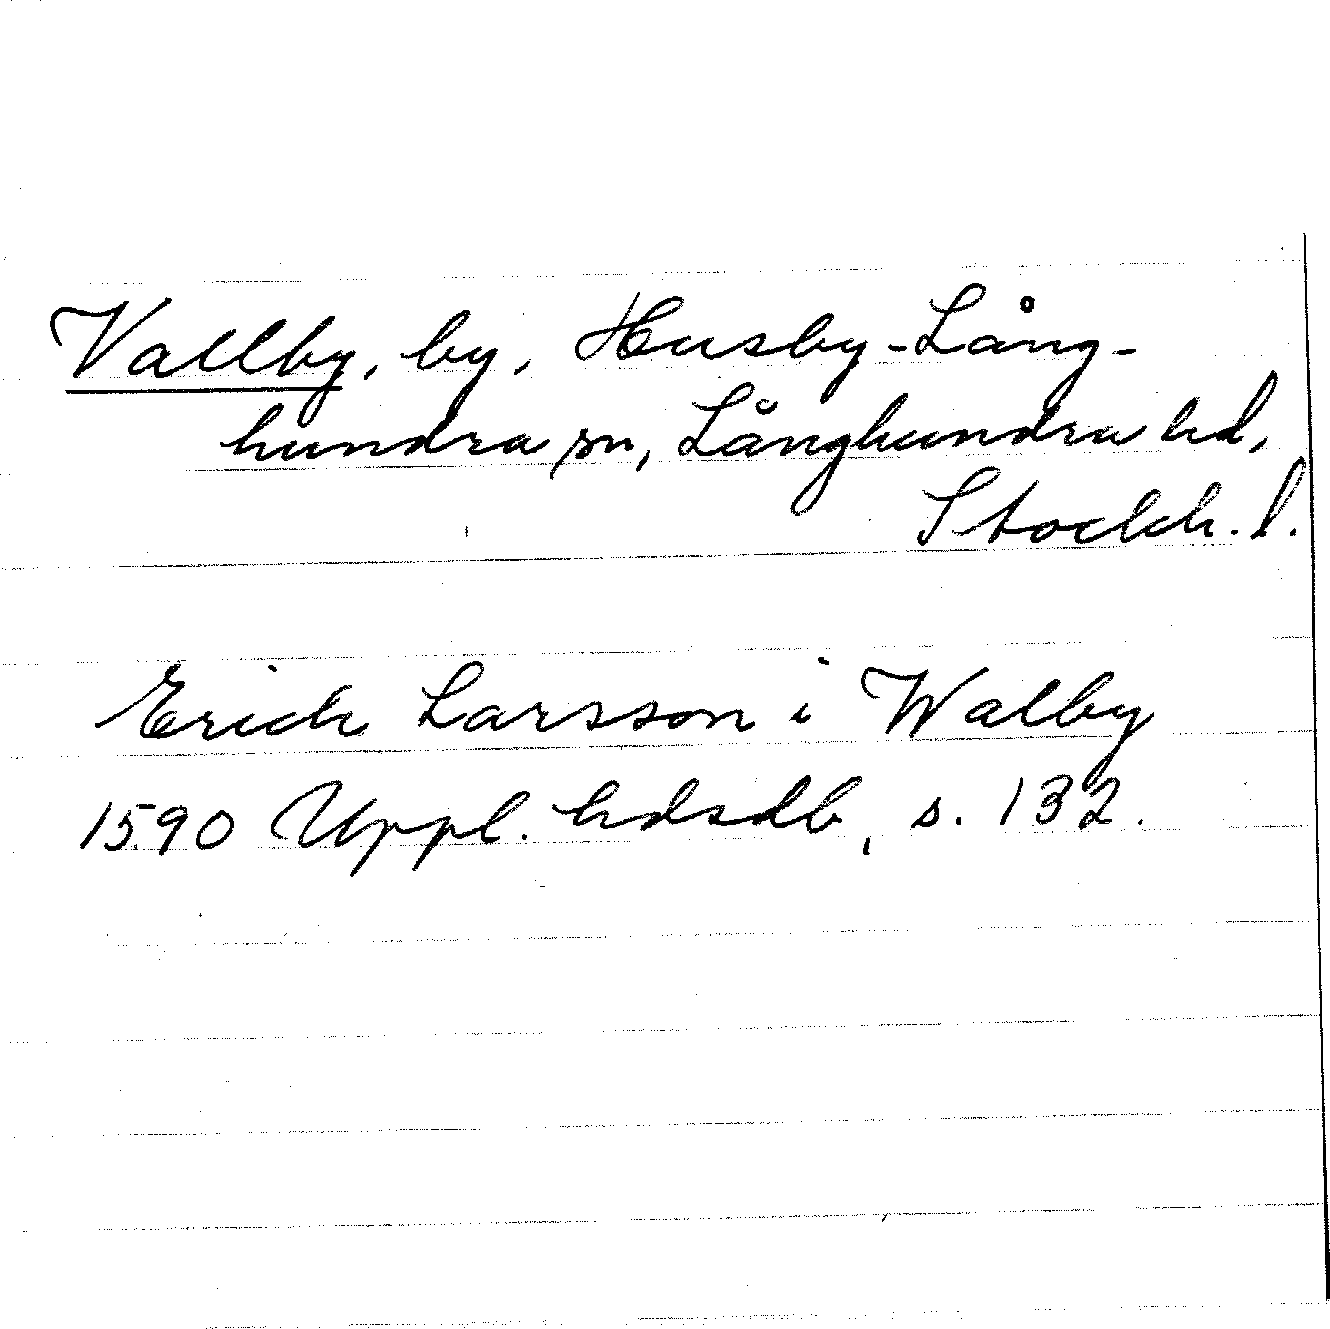 Vallby, by, Husby-Lång-
hundra sn, Långhundra hd,
Stockh. l.
Erich Larsson i Walby
1590 Uppl. hdsdb, s. 132.